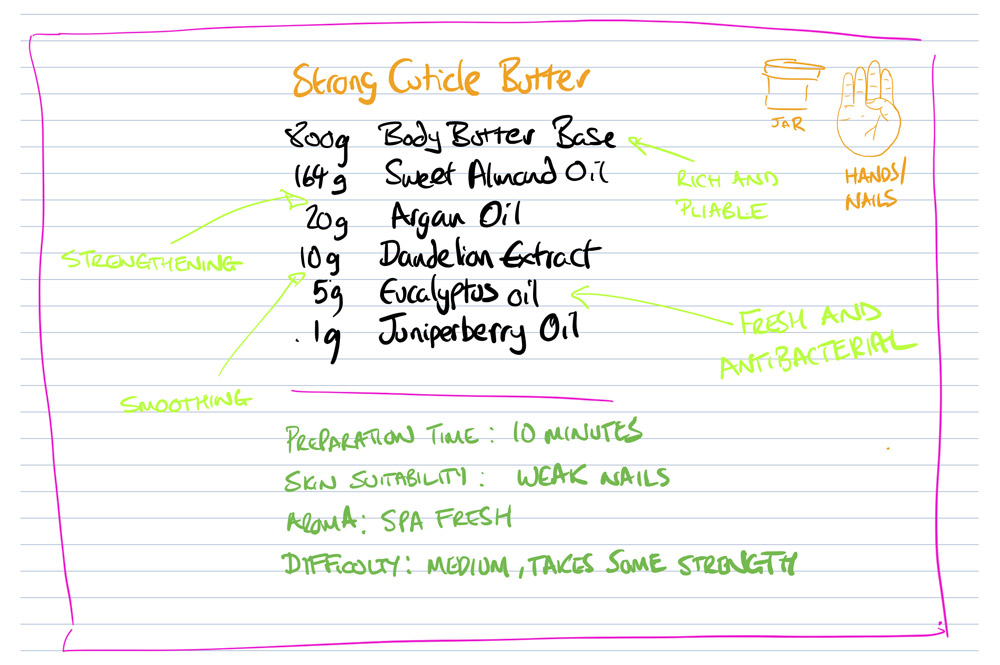 Strong Cuticle Butter
JAR
HANDS/
NAILS
800g Body Butter Base
RICH AND
PLIABLE
164g Sweet Almond Oil
20g Argan Oil
STRENGTHENING
10g Dandelion Extract
5g Eucalyptus oil
FRESH AND
ANTIBACTERIAL
.1g Juniperberry Oil
SMOOTHING
PREPARATION TIME: 10 MINUTES
SKIN SUITABILITY: WEAK NAILS
AROMA: SPA FRESH
DIFFICULTY: MEDIUM, TAKES SOME STRENGTH